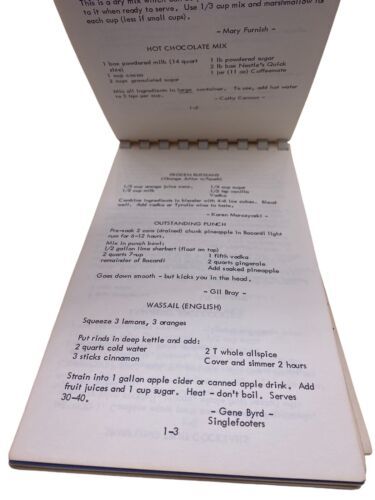 This is a dry mix which can be
to it when ready to serve. Use 1/3 cup mix and marshmallow for
each cup (less if small cups).
~ Mary Furnish ~
HOT CHOCOLATE MIX
1 box powdered milk (14 quart
size)
1 cup cocoa
2 cups granulated sugar
1 lb powdered sugar
2 lb box Nestle's Quick
1 jar (11 oz) Coffeemate
Mix all ingredients in large container. To use, add hot water
to 3 tsps per cup.
~ Cathy Cannon ~
1-2
FROZEN RUSSIANS
(Orange Julius w/Spunk)
1/2 cup orange juice conc.
1/2 cup milk
1/4 cup sugar
1/2 tsp vanilla
Vodka
Combine ingredients in blender with 4-6 ice cubes. Blend
well. Add vodka or Tyrolia wine to taste.
~ Karen
OUTSTANDING PUNCH
Pre-soak 2 cans (drained) chunk pineapple in Bacardi light
rum for 6-12 hours.
Mix in punch bowl:
1/2 gallon lime sherbert (float on top)
2 quarts 7-up
remainder of Bacardi
1 fifth vodka
2 quarts gingerale
Add soaked pineapple
Goes down smooth - but kicks you in the head.
~ Gil Bray ~
WASSAIL (ENGLISH)
Squeeze 3 lemons, 3 oranges
Put rinds in deep kettle and add:
2 quarts cold water
3 sticks cinnamon
2 T whole allspice
Cover and simmer 2 hours
Strain into 1 gallon apple cider or canned apple drink. Add
fruit juices and 1 cup sugar. Heat - don't boil. Serves
30-40.
~ Gene Byrd ~
Singlefooters
1-3